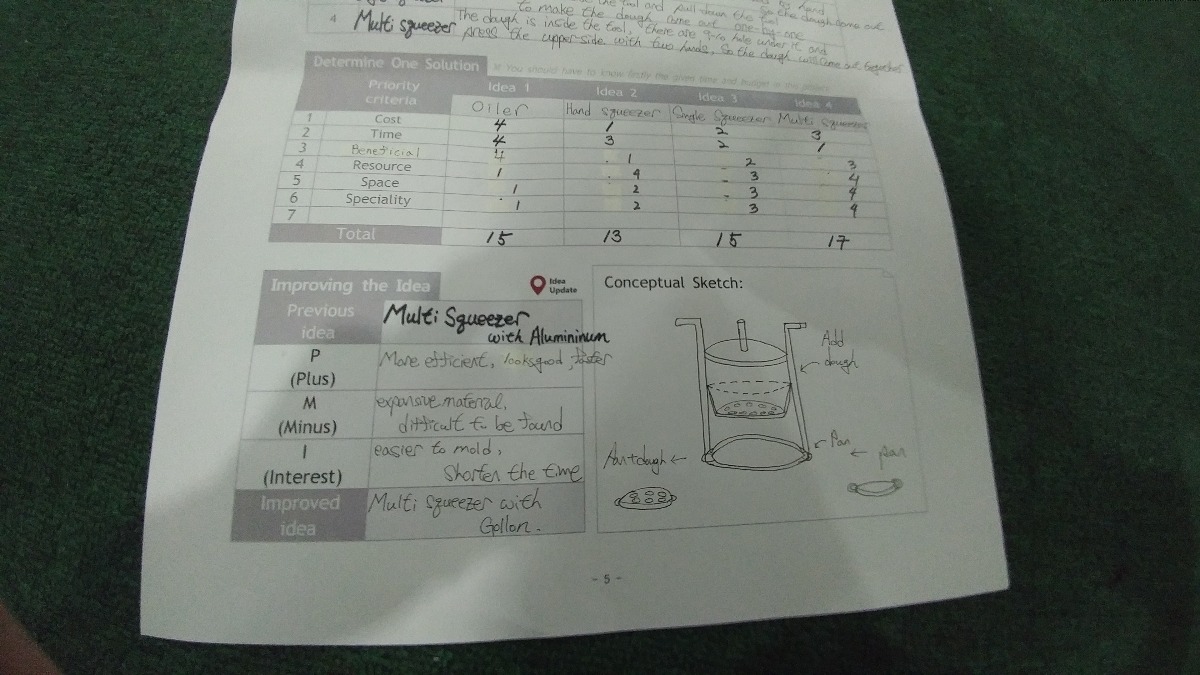 the tool and pull down the tool so the dough come out
to make the dough come out one-by-one
4 Multi squeezer The dough is inside the tool, there are 9~10 hole under it and
press the upper side with two hands, so the dough will come out together
Determine One Solution ※ You should have to know firstly the given time and budget in this project
Priority criteria Idea 1 Idea 2 Idea 3 Idea 4
Oiler Hand squeezer Single Squeezer Multi squeezer
1 Cost 4 1 2 3
2 Time 4 3 2 1
3 Beneficial 4 1 2 3
4 Resource 1 4 3 4
5 Space 1 2 3 4
6 Speciality 1 2 3 4
7
Total 15 13 15 17
Improving the Idea
Idea
Update
Previous
idea
Multi Squeezer
with Alumininum
P
(Plus)
More efficient, looksgood, faster
M
(Minus)
expansive material,
difficult to be found
I
(Interest)
easier to mold,
Shorten the time
Improved
idea
Multi squeezer with
Gallon.
Conceptual Sketch:
Add
dough
Pan
pan
Pan+dough
- 5 -